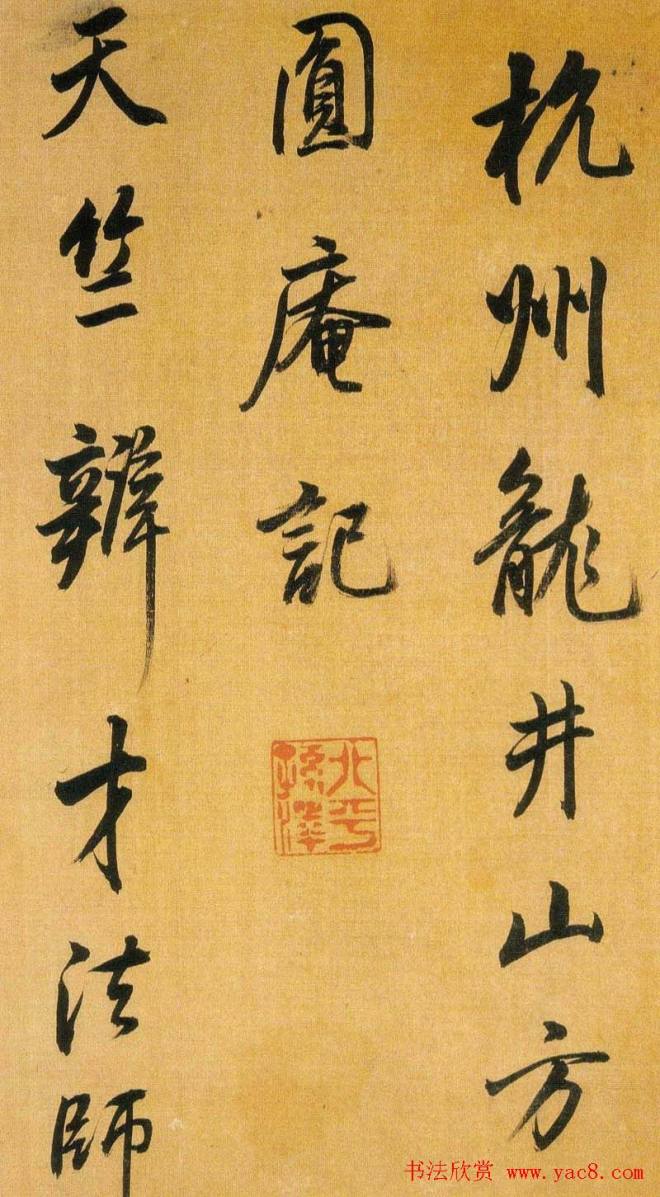 杭州龍井山方
圓庵記
天竺辯才法師
北平
孫澤
书法欣赏 www.yac8.com